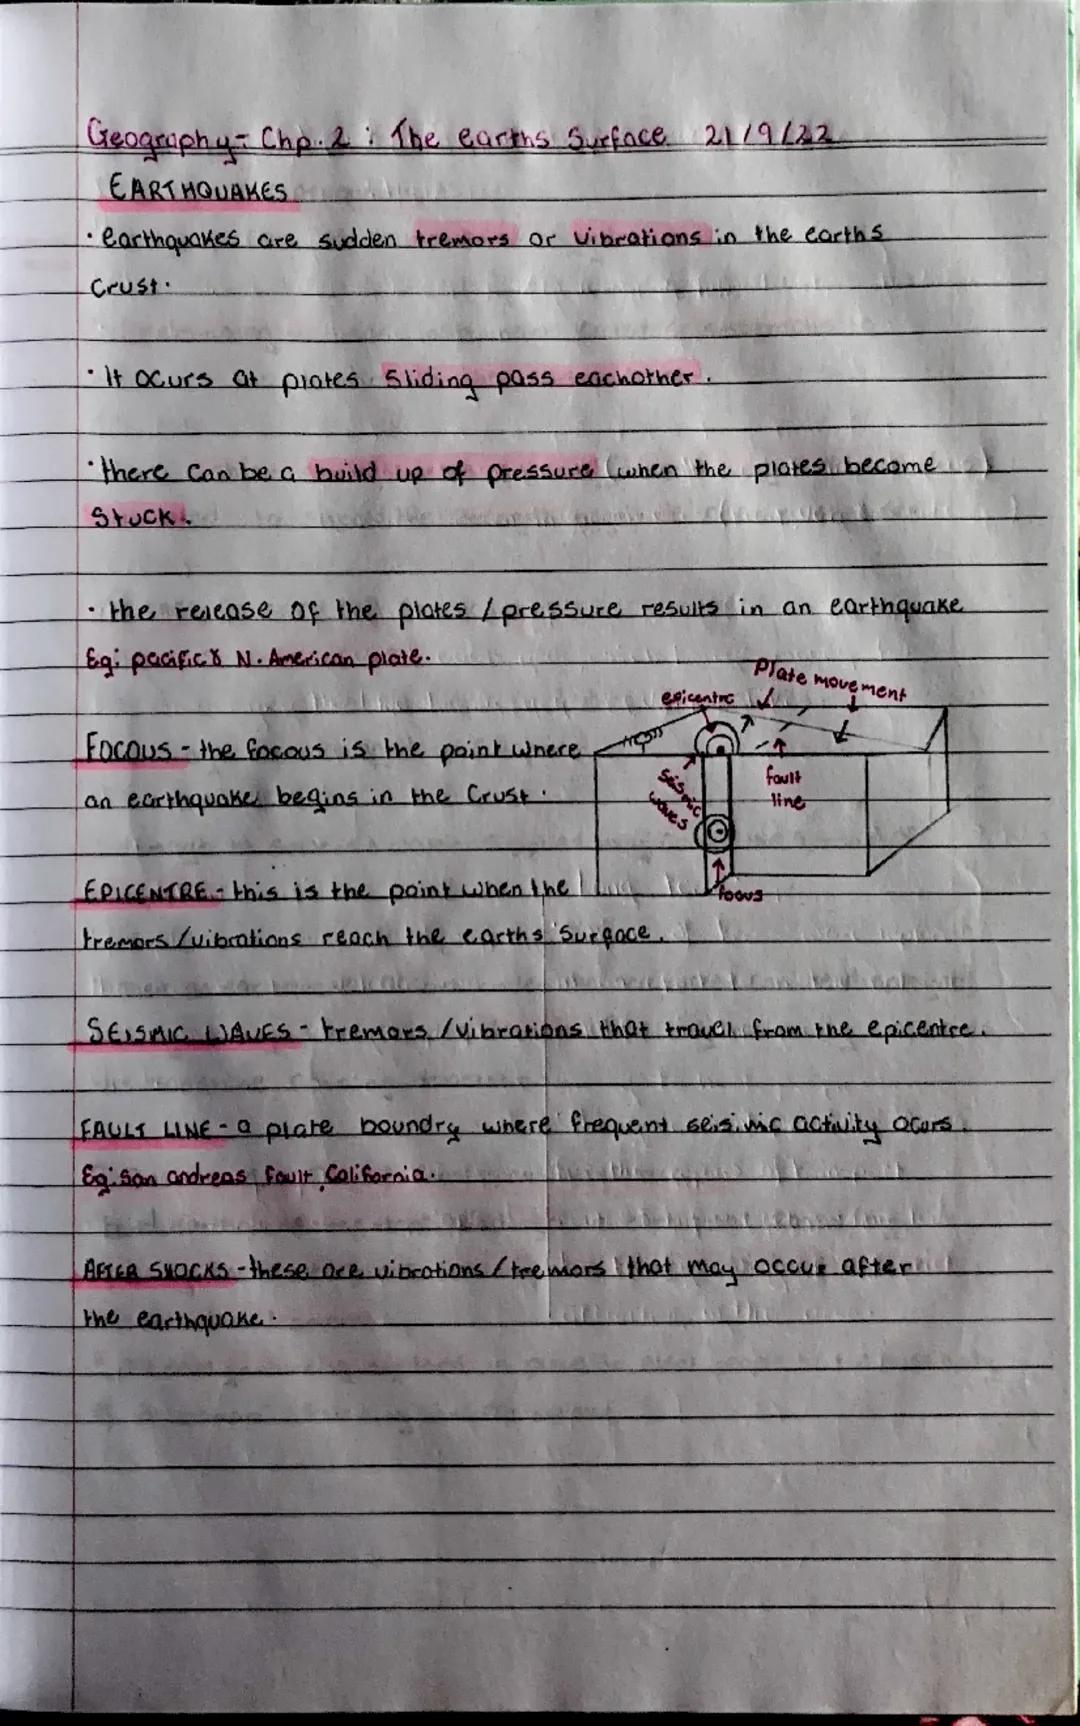 Geography - Chp. 2 : The earths Surface 21/9/22
EARTHQUAKES
· earthquakes are sudden tremors or vibrations in the earths
crust.
· It ocurs at plates sliding pass eachother.
· there can be a build up of pressure when the plates become
stuck.
· the release of the plates / pressure results in an earthquake
Eg: pacific & N. American plate.
Plate movement
epicentre
FOCOUS - the focous is the point where
seismic
waves
fault
line
an earthquake begins in the crust.
EPICENTRE - this is the point when the
focus
tremors /vibrations reach the earths surface.
SEISMIC WAVES - tremors /vibrations that travel from the epicentre.
FAULT LINE - a plate boundry where frequent seismic activity ocurs.
Eg: san andreas fault, California.
AFTER SHOCKS - these are vibrations / tremors that may occur after
the earthquake.